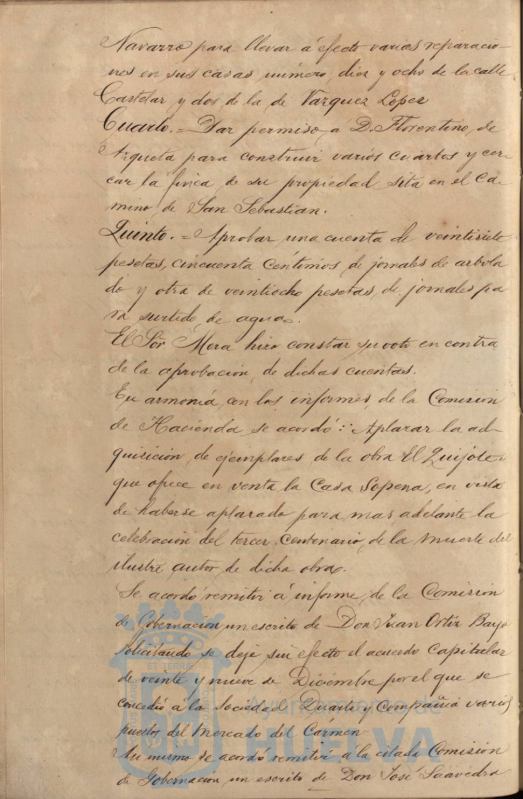 Navarro para llevar á efecto varias reparacio-
nes en sus casas número diez y ocho de la calle
Castelar y dos de la de Vazquez Lopez
Cuarto.= Dar permiso á D. Florentino de
Azqueta para construir varios cuartos y cer-
car la finca de su propiedad sita en el Ca-
mino de San Sebastian.
Quinto.= Aprobar una cuenta de veintisiete
pesetas, cincuenta centimos de jornales de arbola
do y otra de veintiocho pesetas de jornales pa
ra surtido de agua.
El Sor Mora hizo constar su voto en contra
de la aprobacion de dichas cuentas.
En armonía con los informes de la Comision
de Hacienda se acordó: Aplazar la ad-
quisición de ejemplares de la obra El Quijote
que ofece en venta la Casa Sopena, en vista
de haberse aplazado para mas adelante la
celebración del tercer Centenario de la muerte del
ilustre autor de dicha obra.
Se acordó remitir á informe de la Comision
de Gobernación un escrito de Don Juan Ortiz Bayo
solicitando se deje sin efecto el acuerdo Capitular
de veinte y nueve de Diciembre por el que se
concedió á la Sociedad Duarte y Compañia varios
puestos del Mercado del Carmen
Asi mismo se acordó remitir á la citada Comisión
de Gobernacion un escrito de Don José Saavedra
Ayuntamiento de
HUELVA